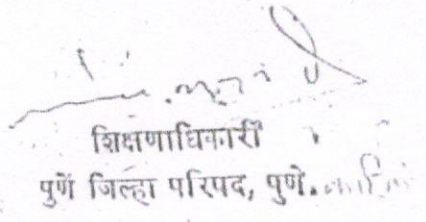 शिक्षणाधिकारी
पुणे जिल्हा परिषद, पुणे.